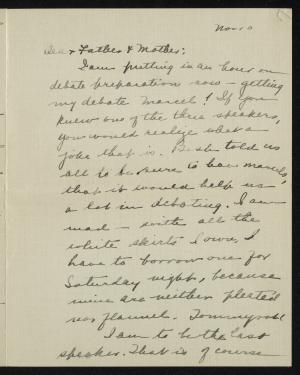 Nov. 10
Dear Father & Mother:
I am putting in an hour on
debate preparation now - getting
my debate Marcel! If you
knew one of the three speakers,
you would realize what a
joke that is. Bess told us
all to be sure to have marcels,
that it would help us
a lot in debating. I am
mad - with all the
white skirts I own, I
have to borrow one for
Saturday night, because
mine are neither pleated
nor flannel. Tommyrot!
I am to be the last
speaker. That is of course